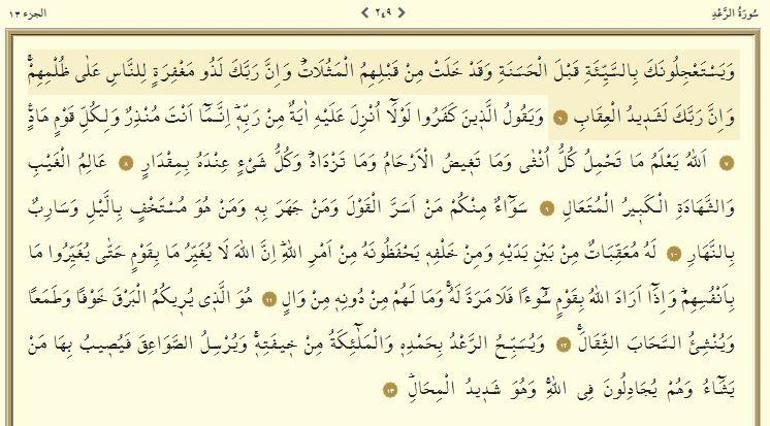 سُورَةُ الرَّعْدِ ٢٤٩ الجزء ١٣
وَيَسْتَعْجِلُونَكَ بِالسَّيِّئَةِ قَبْلَ الْحَسَنَةِ وَقَدْ خَلَتْ مِنْ قَبْلِهِمُ الْمَثُلَاتُۜ وَاِنَّ رَبَّكَ لَذُو مَغْفِرَةٍ لِلنَّاسِ عَلٰى ظُلْمِهِمْۚ
وَاِنَّ رَبَّكَ لَشَد۪يدُ الْعِقَابِ ٦ وَيَقُولُ الَّذ۪ينَ كَفَرُوا لَوْلَٓا اُنْزِلَ عَلَيْهِ اٰيَةٌ مِنْ رَبِّه۪ۜ اِنَّمَٓا اَنْتَ مُنْذِرٌ وَلِكُلِّ قَوْمٍ هَادٍ۟
٧ اَللّٰهُ يَعْلَمُ مَا تَحْمِلُ كُلُّ اُنْثٰى وَمَا تَغ۪يضُ الْاَرْحَامُ وَمَا تَزْدَادُۜ وَكُلُّ شَيْءٍ عِنْدَهُ بِمِقْدَارٍ ٨ عَالِمُ الْغَيْبِ
وَالشَّهَادَةِ الْكَب۪يرُ الْمُتَعَالِ ٩ سَوَٓاءٌ مِنْكُمْ مَنْ اَسَرَّ الْقَوْلَ وَمَنْ جَهَرَ بِه۪ وَمَنْ هُوَ مُسْتَخْفٍ بِالَّيْلِ وَسَارِبٌ
بِالنَّهَارِ ١٠ لَهُ مُعَقِّبَاتٌ مِنْ بَيْنِ يَدَيْهِ وَمِنْ خَلْفِه۪ يَحْفَظُونَهُ مِنْ اَمْرِ اللّٰهِۜ اِنَّ اللّٰهَ لَا يُغَيِّرُ مَا بِقَوْمٍ حَتّٰى يُغَيِّرُوا مَا
بِاَنْفُسِهِمْۜ وَاِذَٓا اَرَادَ اللّٰهُ بِقَوْمٍ سُٓوءًا فَلَا مَرَدَّ لَهُۚ وَمَا لَهُمْ مِنْ دُونِه۪ مِنْ وَالٍ ١١ هُوَ الَّذ۪ي يُر۪يكُمُ الْبَرْقَ خَوْفًا وَطَمَعًا
وَيُنْشِئُ السَّحَابَ الثِّقَالَۚ ١٢ وَيُسَبِّحُ الرَّعْدُ بِحَمْدِه۪ وَالْمَلٰٓئِكَةُ مِنْ خ۪يفَتِه۪ۚ وَيُرْسِلُ الصَّوَاعِقَ فَيُص۪يبُ بِهَا مَنْ
يَشَٓاءُ وَهُمْ يُجَادِلُونَ فِي اللّٰهِۚ وَهُوَ شَد۪يدُ الْمِحَالِۜ ١٣